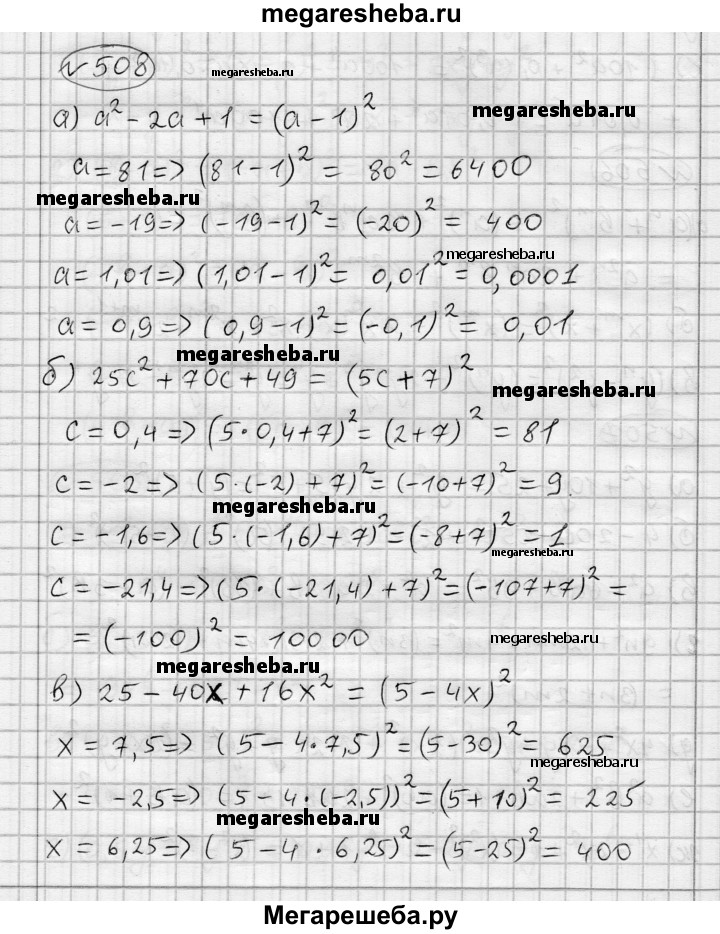 megaresheba.ru
№ 508
megaresheba.ru
а) a² - 2a + 1 = (a - 1)²
megaresheba.ru
a = 81 => (81-1)² = 80² = 6400
megaresheba.ru
a = -19 => (-19-1)² = (-20)² = 400
megaresheba.ru
a = 1,01 => (1,01-1)² = 0,01² = 0,0001
a = 0,9 => (0,9-1)² = (-0,1)² = 0,01
megaresheba.ru
б) 25c² + 70c + 49 = (5c + 7)²
megaresheba.ru
c = 0,4 => (5·0,4+7)² = (2+7)² = 81
c = -2 => (5·(-2)+7)² = (-10+7)² = 9
megaresheba.ru
c = -1,6 => (5·(-1,6)+7)² = (-8+7)² = 1
megaresheba.ru
c = -21,4 => (5·(-21,4)+7)² = (-107+7)² =
= (-100)² = 10000
megaresheba.ru
megaresheba.ru
в) 25 - 40x + 16x² = (5 - 4x)²
x = 7,5 => (5-4·7,5)² = (5-30)² = 625
megaresheba.ru
x = -2,5 => (5-4·(-2,5))² = (5+10)² = 225
megaresheba.ru
x = 6,25 => (5-4·6,25)² = (5-25)² = 400
Мегарешеба.ру